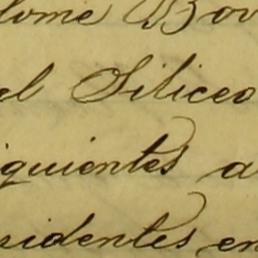 lomé Bov
el Siliceo
iguientes a
sidentes en